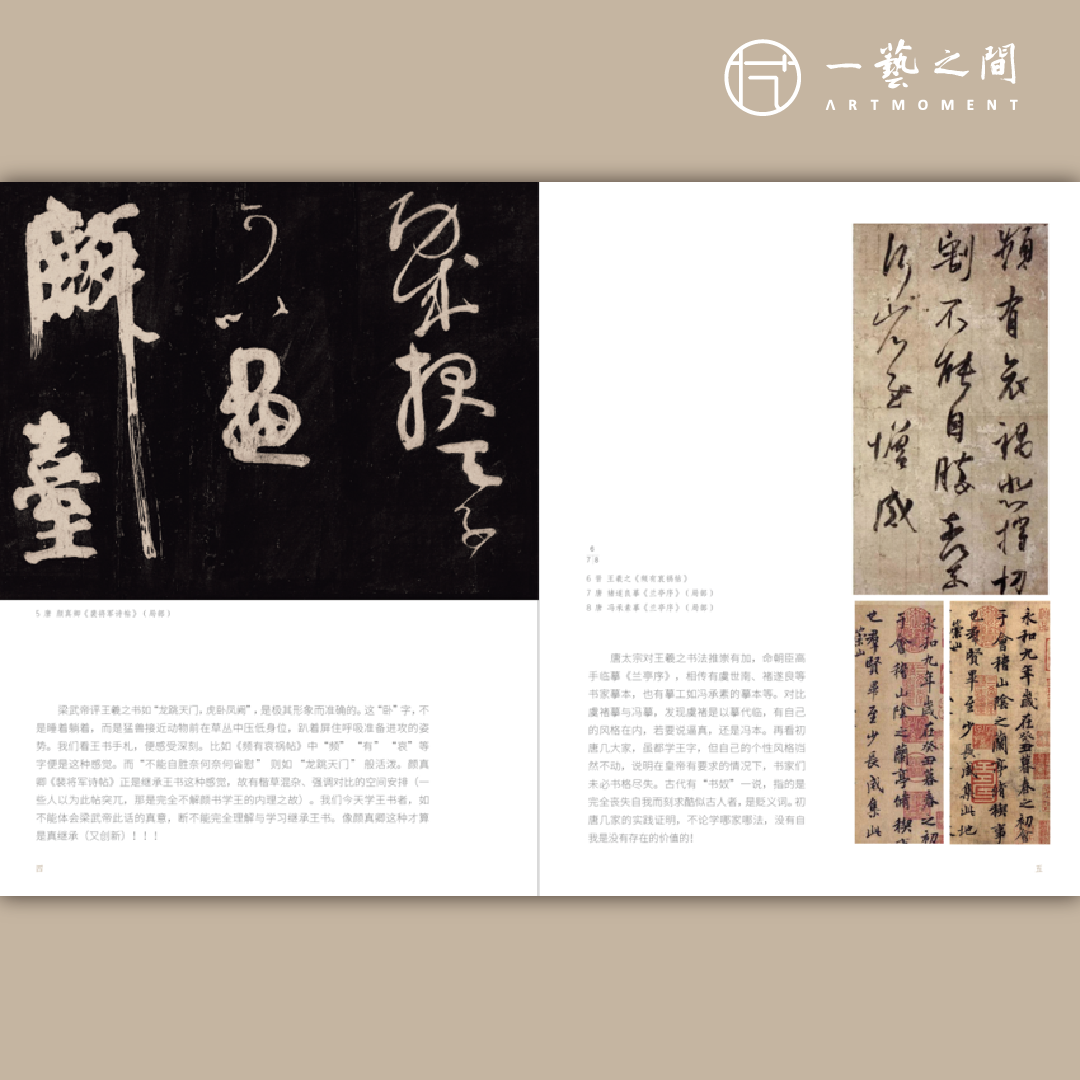 一藝之間
ARTMOMENT
麟
臺
可
以
過
戎挾
天子
5 唐 颜真卿《裴将军诗帖》(局部)
梁武帝评王羲之书如“龙跳天门,虎卧凤阙”,是极其形象而准确的。这“卧”字,不
是睡着躺着,而是猛兽接近动物前在草丛中压低身位,趴着屏住呼吸准备进攻的姿
势。我们看王书手札,便感受深刻。比如《频有哀祸帖》中“频”“有”“哀”等
字便是这种感觉。而“不能自胜奈何奈何省慰”则如“龙跳天门”般活泼。颜真
卿《裴将军诗帖》正是继承王书这种感觉,故有楷草混杂、强调对比的空间安排(一
些人以为此帖突兀,那是完全不解颜书学王的内理之故)。我们今天学王书者,如
不能体会梁武帝此话的真意,断不能完全理解与学习继承王书。像颜真卿这种才算
是真继承(又创新)!!!
四
頻有哀禍悲摧切
割不能自勝奈何奈
何省慰增感
6
7 8
6 晋 王羲之《频有哀祸帖》
7 唐 褚遂良摹《兰亭序》(局部)
8 唐 冯承素摹《兰亭序》(局部)
唐太宗对王羲之书法推崇有加,命朝臣高
手临摹《兰亭序》,相传有虞世南、褚遂良等
书家摹本,也有摹工如冯承素的摹本等。对比
虞褚摹与冯摹,发现虞褚是以摹代临,有自己
的风格在内,若要说逼真,还是冯本。再看初
唐几大家,虽都学王字,但自己的个性风格岿
然不动,说明在皇帝有要求的情况下,书家们
未必书格尽失。古代有“书奴”一说,指的是
完全丧失自我而刻求酷似古人者,是贬义词。初
唐几家的实践证明,不论学哪家哪法,没有自
我是没有存在的价值的!
永和九年歲在癸丑暮春之初
于會稽山陰之蘭亭脩禊事
也羣賢畢至少長咸集此
永和九年歲在癸丑暮春之初會
于會稽山陰之蘭亭脩禊事
也羣賢畢至少長咸集此地
五